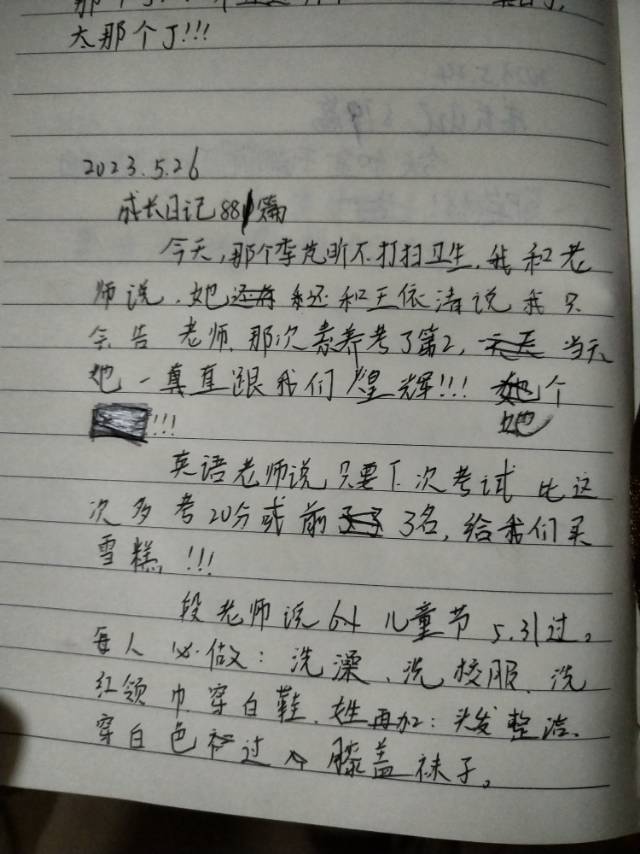 太那个了!!!
2023.5.26
成长日记881篇
今天,那个李梵昕不打扫卫生,我和老
师说,她还和王依清说我只
会告老师,那次素养考了第2,当天
她一真直跟我们煌辉!!!她个
!!!
英语老师说只要下次考试比这
次多考20分或前3名,给我们买
雪糕,!!!
段老师说61儿童节5.31过。
每人必做:洗澡、洗校服、洗
红领巾、穿白鞋、女姓再加:头发整洁、
穿白色不过膝盖袜子。